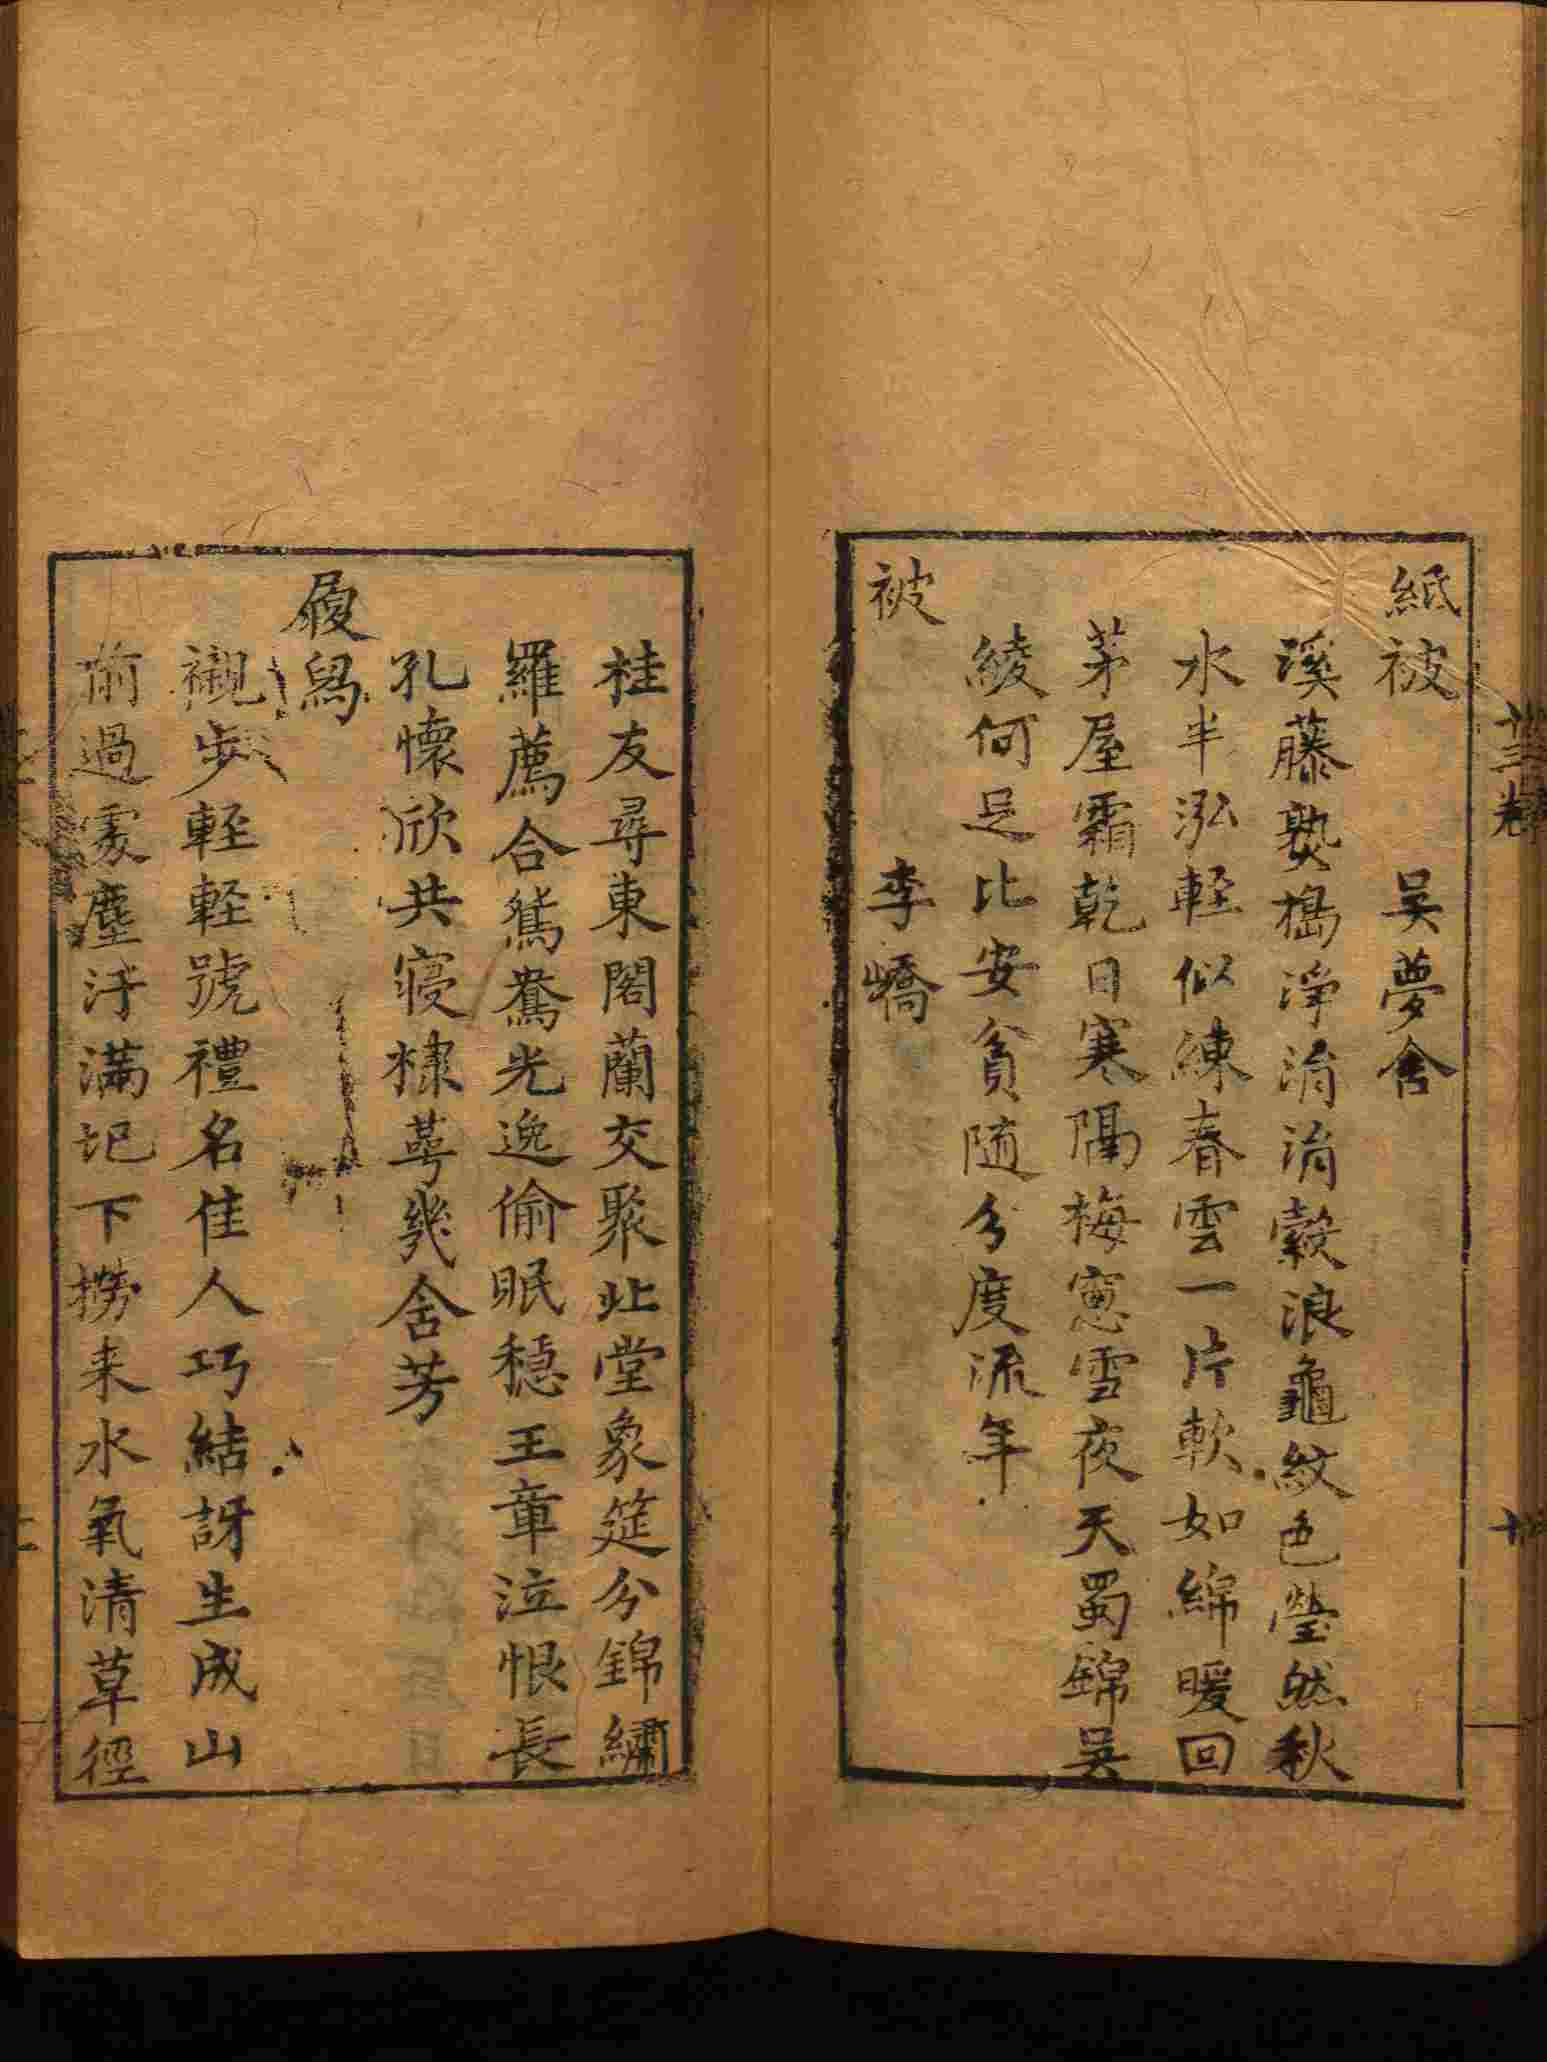 紙被 吴夢舍
溪藤熟搗淨涓涓縠浪龜紋色瑩然秋
水半泓軽似練春雲一片軟如綿暖回
茅屋霜乾日寒隔梅窓雪夜天蜀錦吴
綾何足比安貧随分度流年
被 李嶠
桂友尋東閣蘭交聚北堂象筵分錦繡
羅薦合鴛鴦光逸偷眠穏王章泣恨長
孔懷欣共寝棣萼幾舍芳
履舄
襯步軽軽號禮名佳人巧結訝生成山
前過處塵汙满記下榜来水氣清草徑
廿三卷